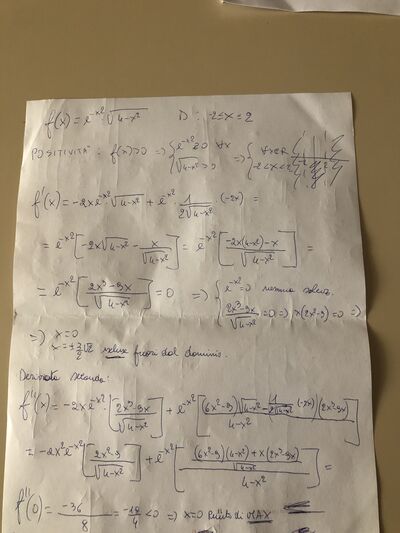 f(x) = e^{-x²} · √(4-x²) D: -2≤x≤2
POSITIVITÀ: f(x)>0 => { e^{-x²}≥0 ∀x √(4-x²)>0 => { ∀x∈R -2<x<2
f'(x) = -2xe^{-x²} · √(4-x²) + e^{-x²} · 1/(2√(4-x²)) · (-2x) =
= e^{-x²} [ -2x√(4-x²) - x/√(4-x²) ] = e^{-x²} [ (-2x(4-x²)-x)/√(4-x²) ] =
= e^{-x²} [ (2x³-9x)/√(4-x²) ] = 0 => { e^{-x²}=0 nessuna soluz. (2x³-9x)/√(4-x²) = 0 => x(2x²-9)=0 =>
=> x=0
x=±3/2√2 fuori dal dominio.
Derivata seconda:
f''(x) = -2xe^{-x²} · [ (2x³-9x)/√(4-x²) ] + e^{-x²} [ ((6x²-9)√(4-x²) - 1/(2√(4-x²)) (-2x)(2x³-9x))/(4-x²) ]
= -2x²e^{-x²} [ (2x²-9)/√(4-x²) ] + e^{-x²} [ (((6x²-9)(4-x²)+x(2x³-9x))/√(4-x²))/(4-x²) ] =
f''(0) = -36/8 = -18/4 <0 => x=0 punto di MAX